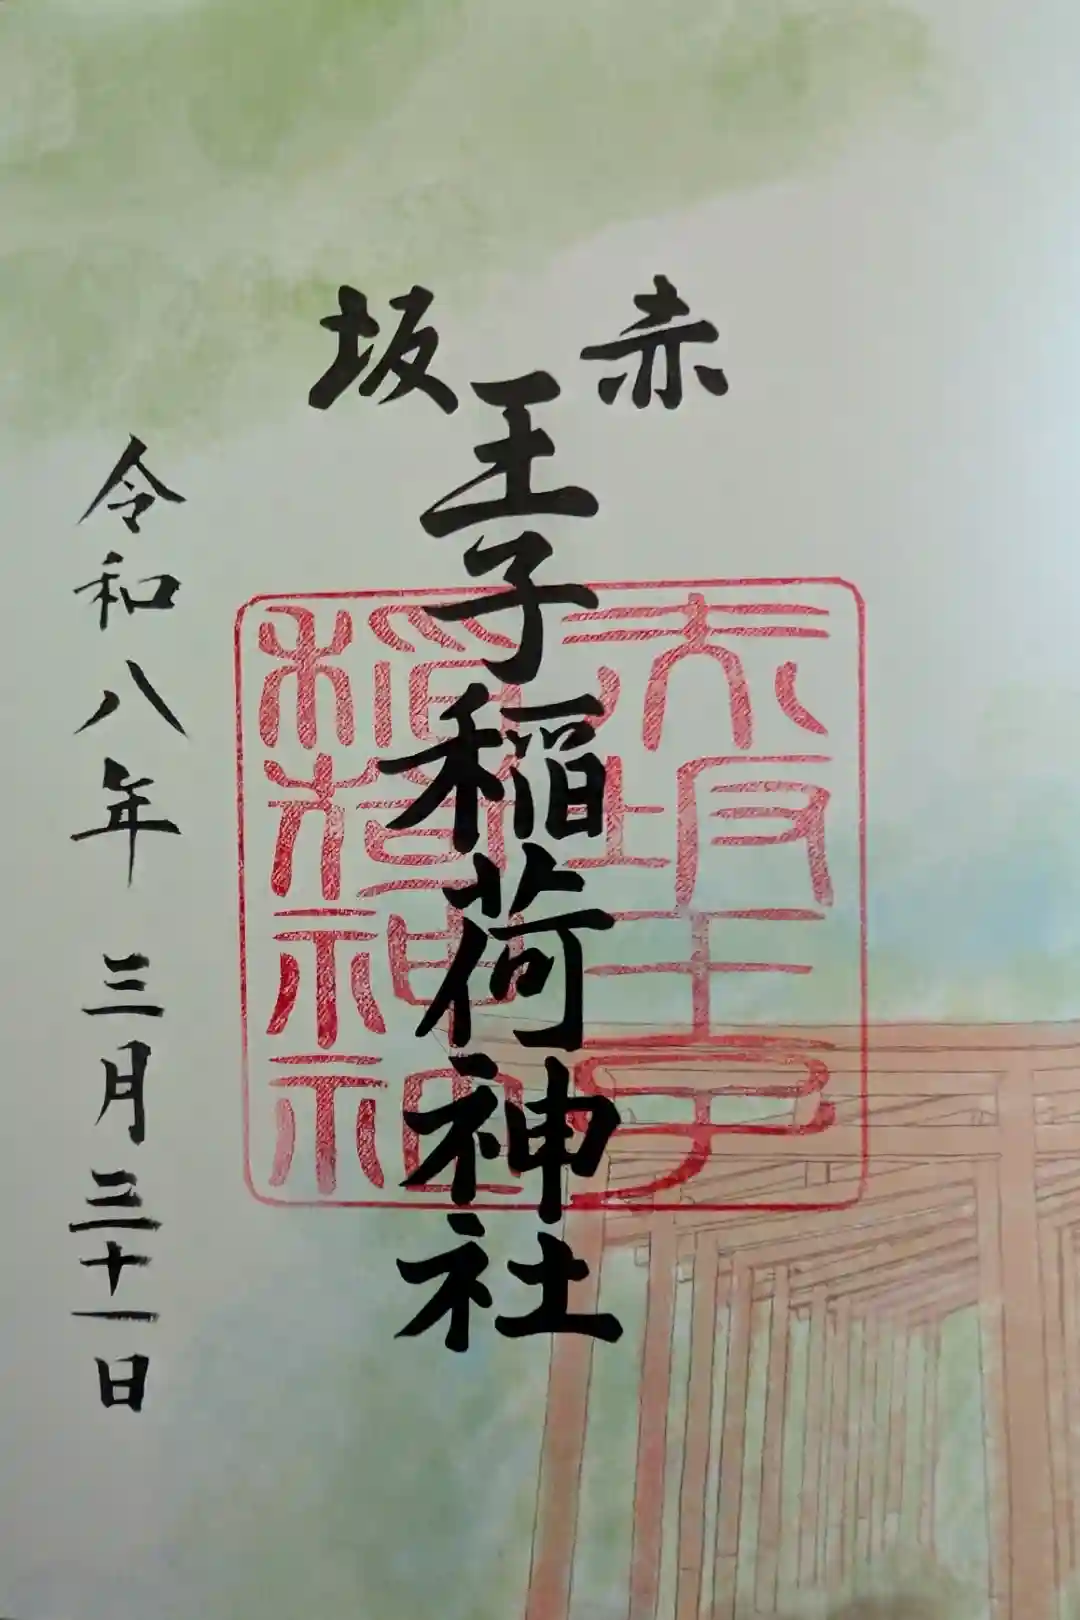 赤坂
王子稲荷神社
令和八年三月三十一日
赤坂王子
稲荷神社